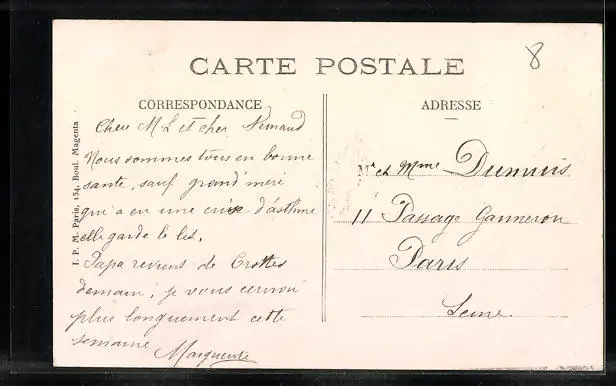 8
CARTE POSTALE
CORRESPONDANCE
ADRESSE
I. P. M. Paris, 154, Boul. Magenta
Chere M L et cher Fernand
Nous sommes tous en bonne
sante, sauf grand'mère
qui a eu une crise d'asthme
elle garde le lit.
Papa revient de Crottes
demain; je vous écrirai
plus longuement cette
semaine
Marguerite
Mr et Mme Dumuis
11 Passage Ganneron
Paris
Seine.